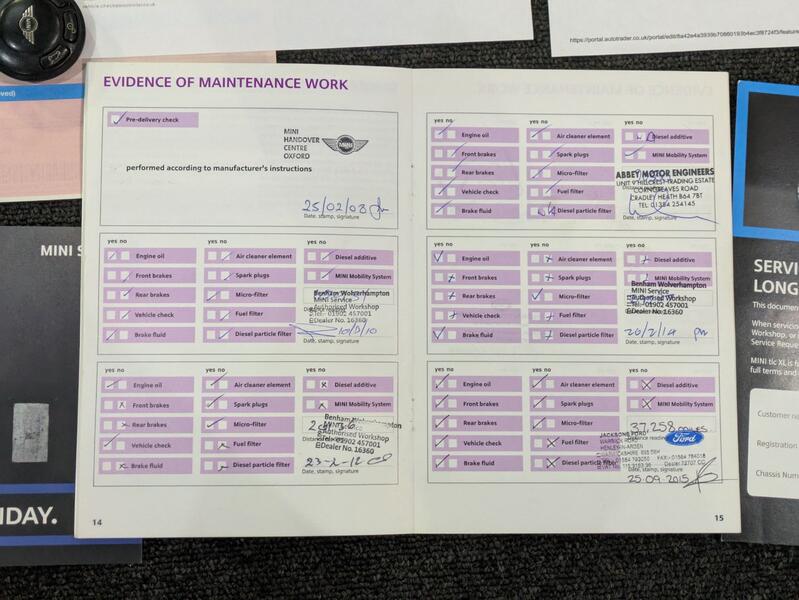 vehicle.checkapositivebi.uk
https://portal.autotrader.co.uk/portal/edit/8a42a4a3939b70660193b4ec3f8724f3/feature
EVIDENCE OF MAINTENANCE WORK
Pre-delivery check
MINI
HANDOVER
CENTRE
OXFORD
MINI
performed according to manufacturer's instructions
25/02/08
Date, stamp, signature
yes no
Engine oil
Front brakes
Rear brakes
Vehicle check
Brake fluid
Air cleaner element
Spark plugs
Micro-filter
Fuel filter
Diesel particle filter
Diesel additive
MINI Mobility System
Benham Wolverhampton
MINI Service
Authorised Workshop
Tel: 01902 457001
Dealer No. 16360
Date, stamp, signature
yes no
Engine oil
Front brakes
Rear brakes
Vehicle check
Brake fluid
Air cleaner element
Spark plugs
Micro-filter
Fuel filter
Diesel particle filter
Diesel additive
MINI Mobility System
Benham Wolverhampton
Authorised Workshop
Tel: 01902 457001
Dealer No. 16360
23-2-12
Date, stamp, signature
14
yes no
Engine oil
Front brakes
Rear brakes
Vehicle check
Brake fluid
Air cleaner element
Spark plugs
Micro-filter
Fuel filter
Diesel particle filter
Diesel additive
MINI Mobility System
ABBEY MOTOR ENGINEERS
UNIT 9 HILLCREST TRADING ESTATE
CORNGREAVES ROAD
CRADLEY HEATH B64 7BT
TEL 01384 254145
Date, stamp, signature
yes no
Engine oil
Front brakes
Rear brakes
Vehicle check
Brake fluid
Air cleaner element
Spark plugs
Micro-filter
Fuel filter
Diesel particle filter
Diesel additive
MINI Mobility System
Benham Wolverhampton
MINI Service
Authorised Workshop
Tel: 01902 457001
Dealer No. 16360
Date, stamp, signature
yes no
Engine oil
Front brakes
Rear brakes
Vehicle check
Brake fluid
Air cleaner element
Spark plugs
Micro-filter
Fuel filter
Diesel particle filter
Diesel additive
MINI Mobility System
37,258 MILES
JACKSONS FORD
Ford
HENLEY-IN-ARDEN
25.09.2015
Date, stamp, signature
15
MINI S
NDAY.
SERVI
LONG
This documen
When servicing
Workshop, or
Service Reque
MINI tlc XL is f
full terms and
Customer n
Registration
Chassis Numb